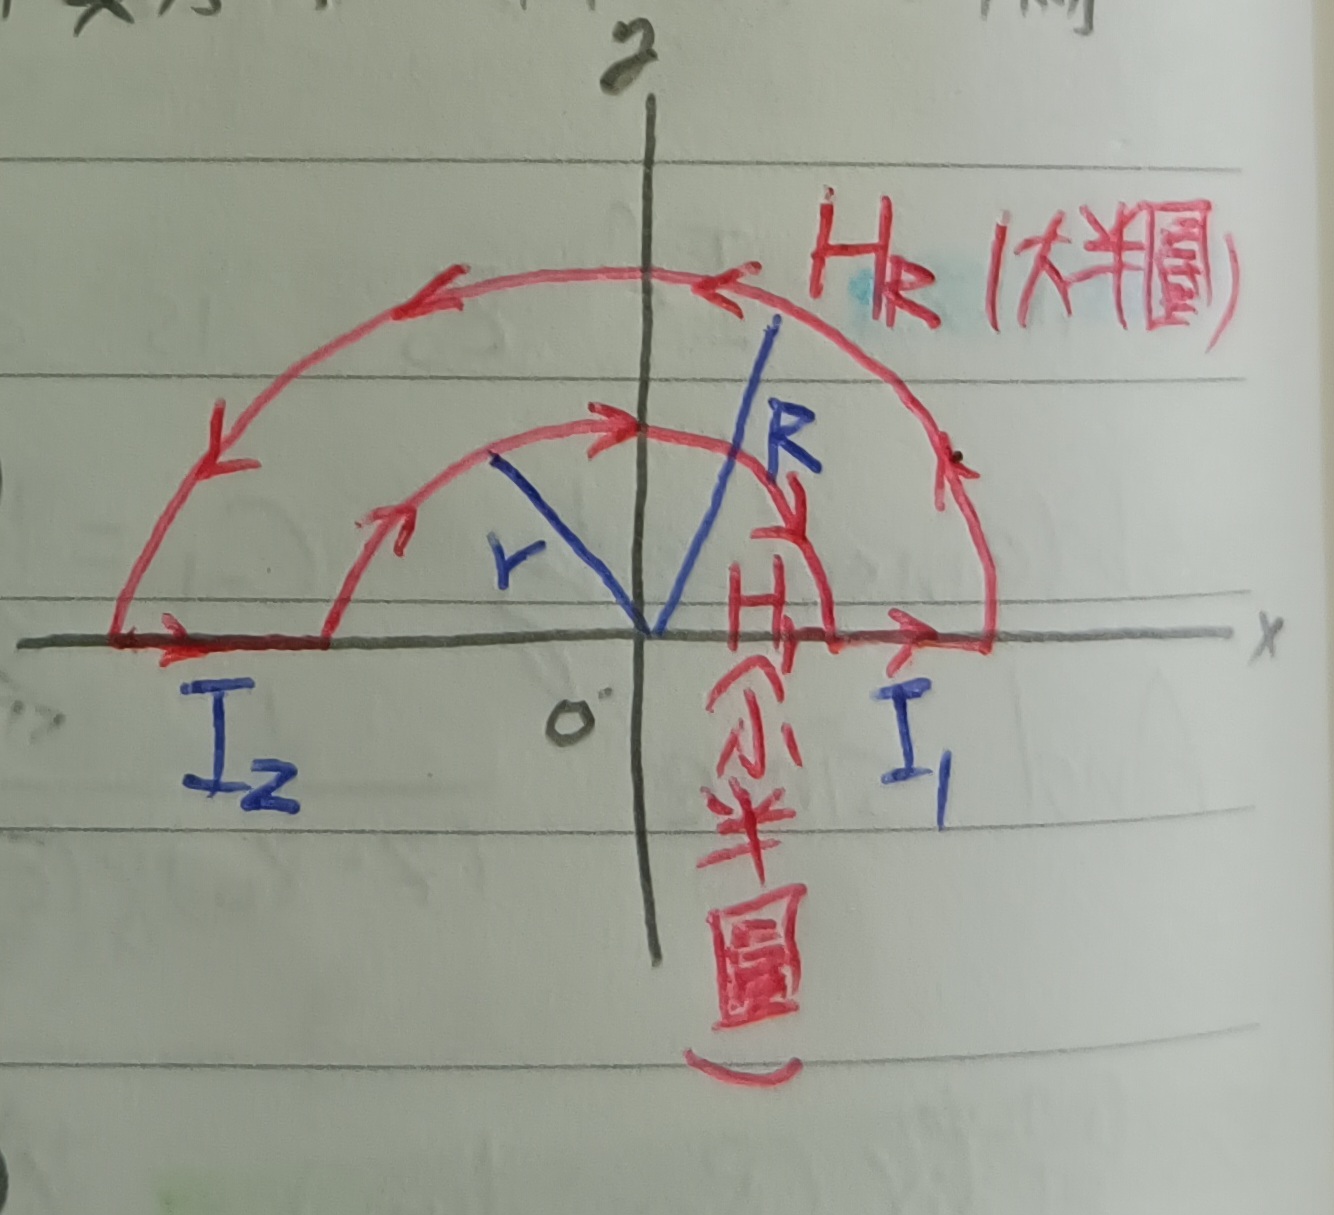 y
H_R (大半圓)
R
r
H_r (小半圓)
x
I_2
O
I_1